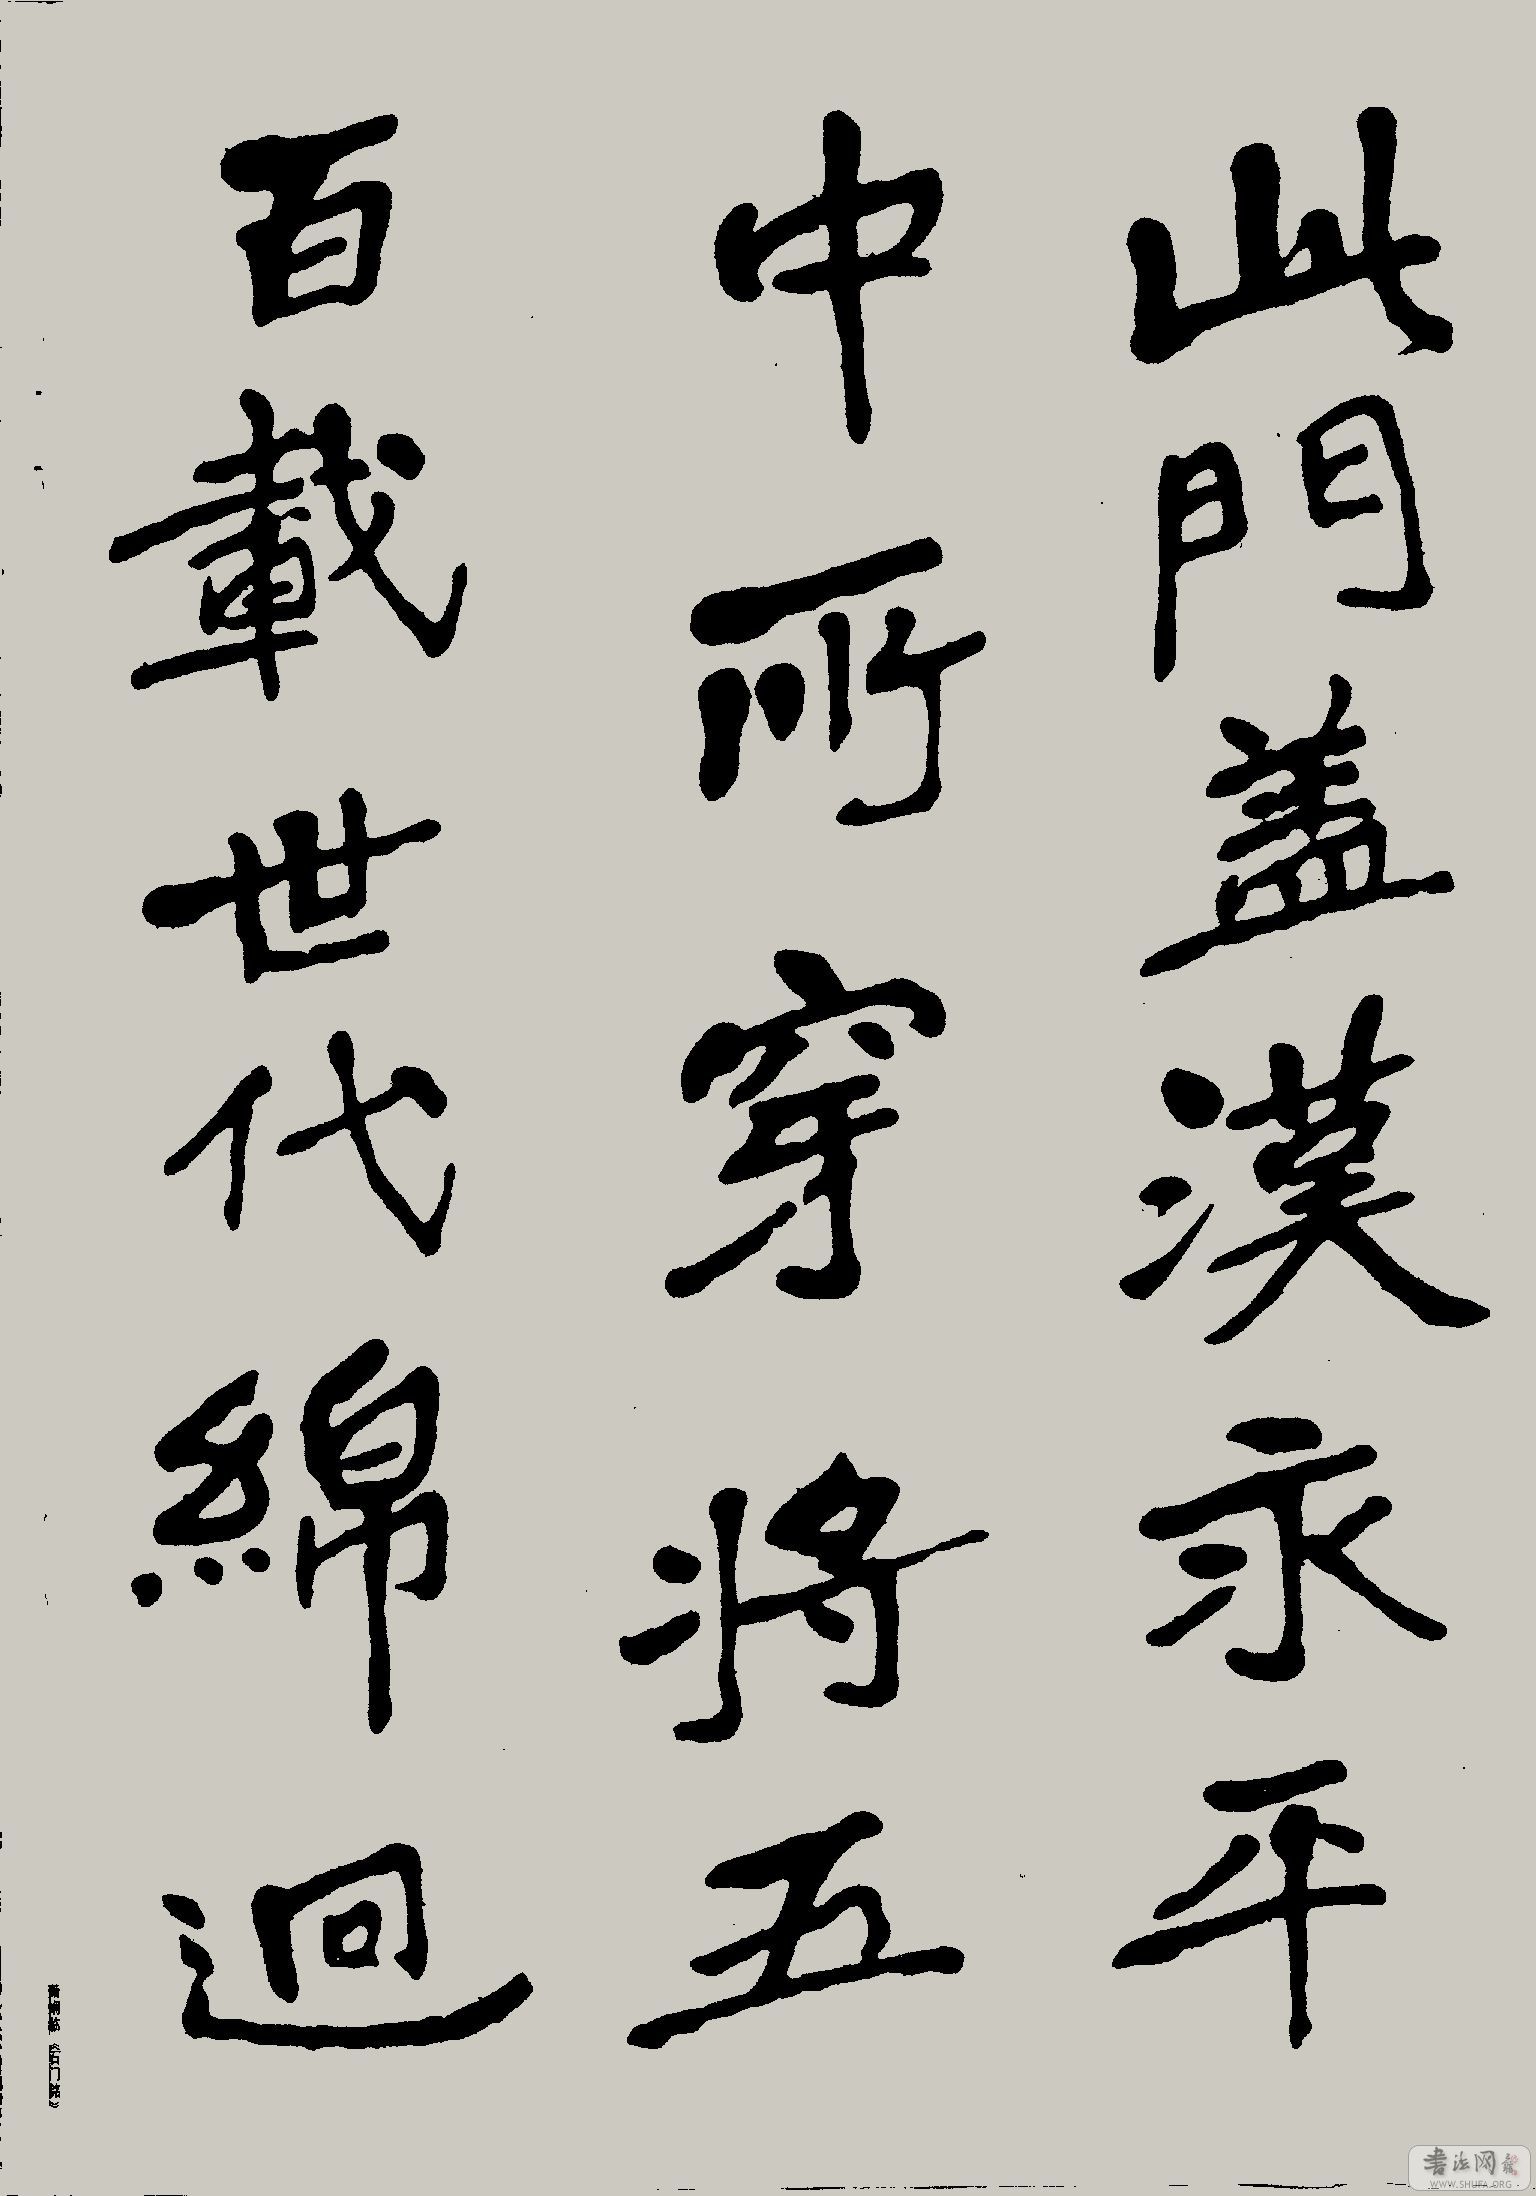 此門盖漢永平
中所穿將五
百載世代綿迴
临《石门铭》
书法网
WWW.SHUFA.ORG